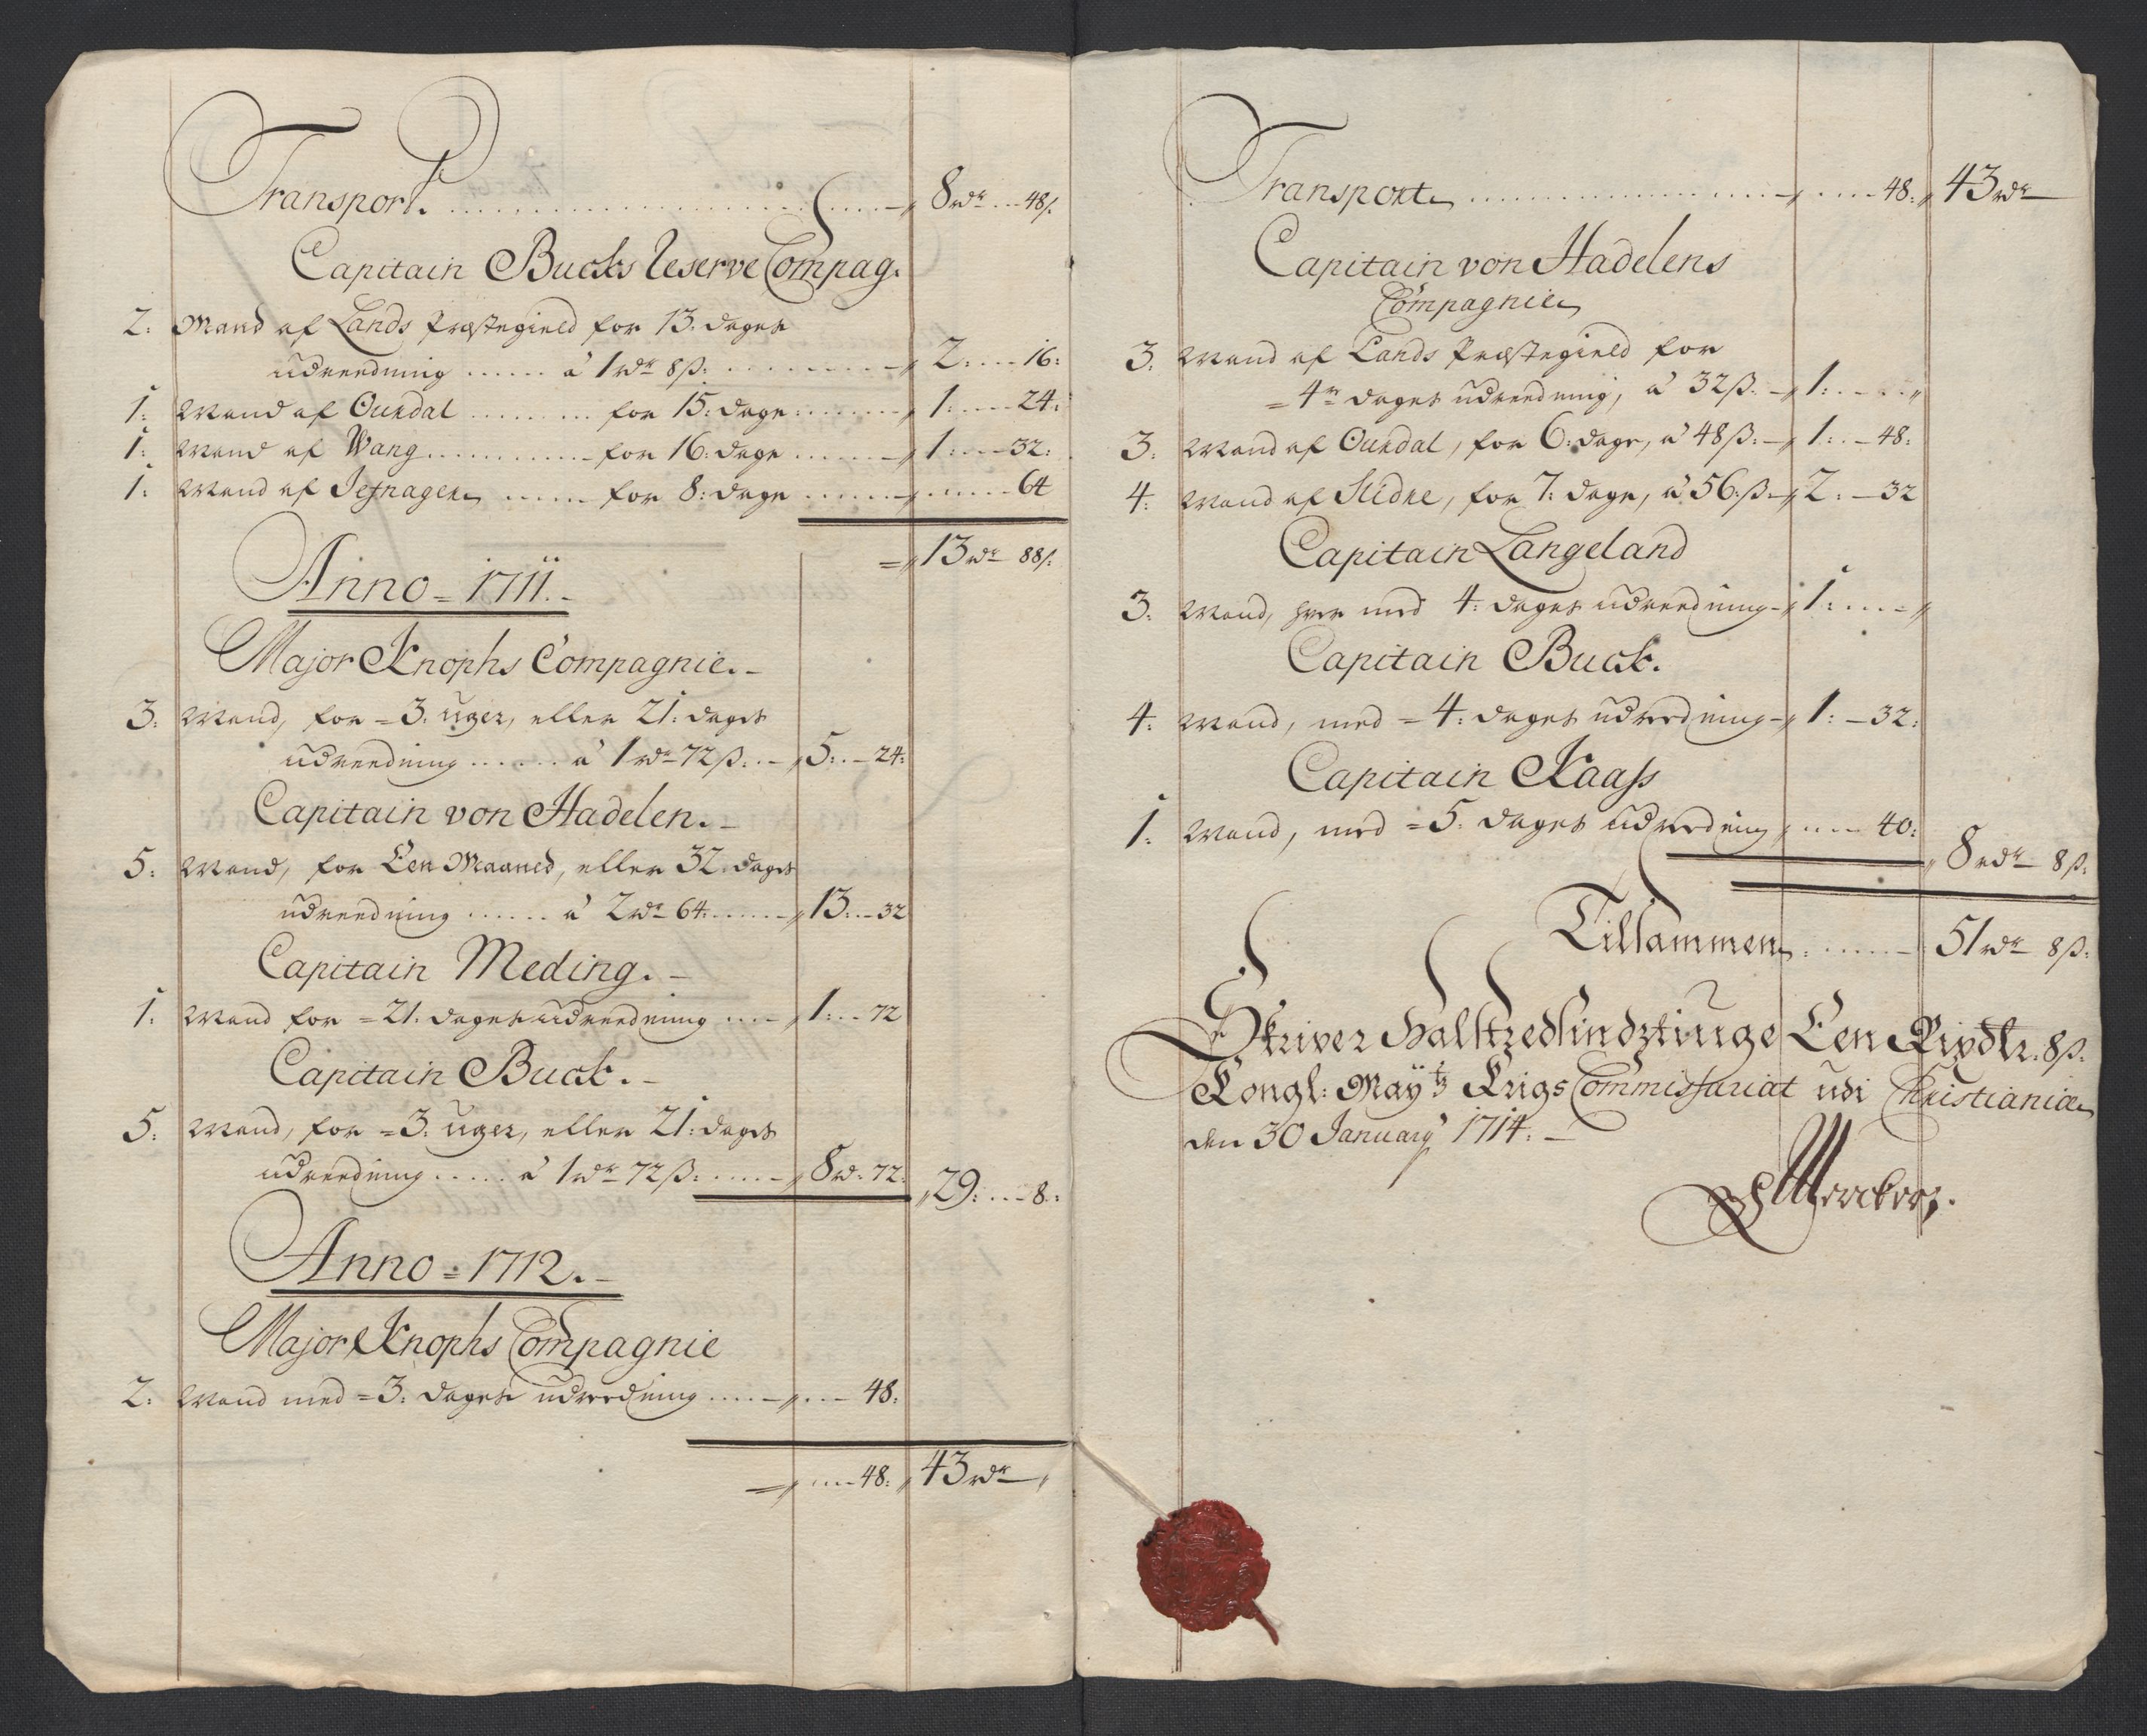 Transport. 8 rdr 48ß.
Capitain Bucks Reserve Compag.
2: Mand af Lands Præstegield for 13: dages
udreedning à 1 rdr 8ß: 2: 16:
1: Mand af Ourdal for 15: dage 1: 24:
1: Mand af Wang for 16: dage 1: 32:
1: Mand af Jefnager for 8: dage 64
13 rdr 88ß.
Anno = 1711.
Major Knophs Compagnie.
3: Mand, for = 3: uger, eller 21: dages
udreedning à 1 rdr 72ß: 5: 24:
Capitain von Hadelen.
5: Mand, for Een Maaned, eller 32: dages
udreedning à 2 rdr 64: 13: 32
Capitain Meding.
1: Mand for = 21: dages udreedning 1: 72
Capitain Buck.
5: Mand, for = 3: uger, eller 21: dages
udreedning à 1 rdr 72ß: 8 rd: 72: 29: 8:
Anno = 1712.
Major Knophs Compagnie
2: Mand med = 3: dages udreedning 48:
48: 43 rdr
Transport 48: 43 rdr
Capitain von Hadelens
Compagnie
3: Mand af Lands Præstegield for
= 4re dages udreedning, à 32ß. 1:
3: Mand af Ourdal, for 6: dage, à 48ß: 1: 48:
4: Mand af Slidre, for 7: dage, à 56:ß 2: 32
Capitain Langeland
3: Mand, hver med 4: dages udreedning 1:
Capitain Buck.
4: Mand, med = 4: dages udreedning 1: 32:
Capitain Kaaſs
1: Mand, med = 5: dages udreedning 40:
8 rdr 8ß:
Tilsammen 51 rdr 8ß:
Skriver Halftzedsindztiuge Een Rixdlr. 8ß.
Kongl: Mayts Krigs Commissariat udi Christiania
den 30 January 1714.